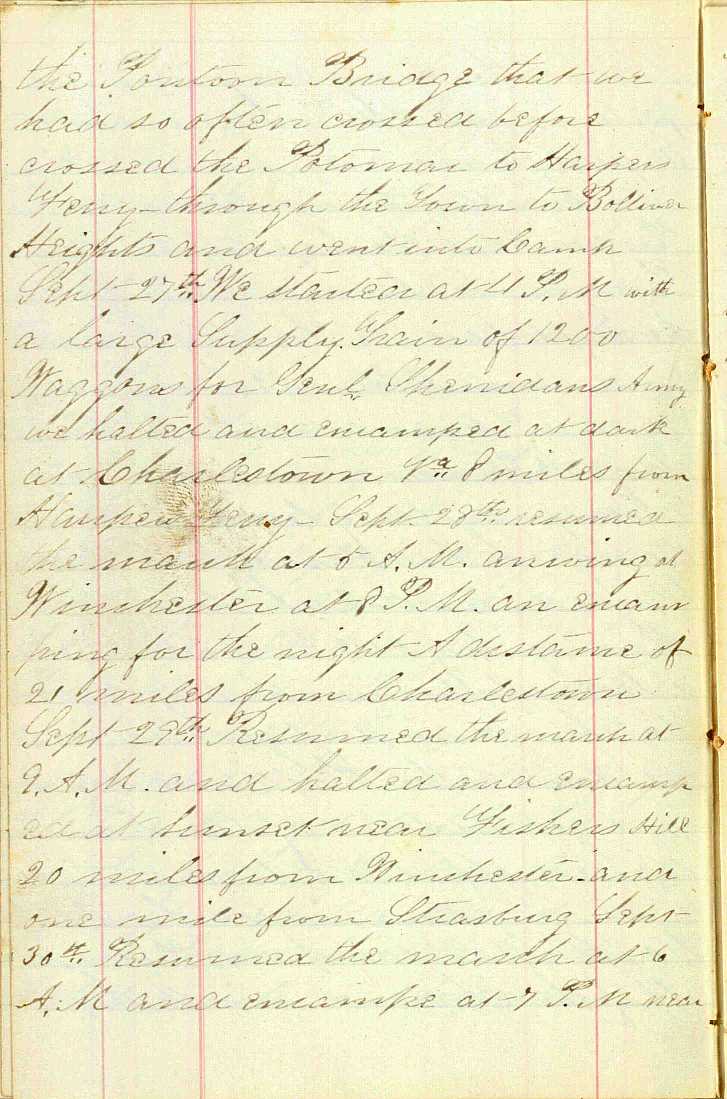 the Pontoon Bridge that we
had so often crossed before
crossed the Potomac to Harpers
Ferry - through the Town to Bolliver
Heights and went into Camp
Sept 27th. We started at 4 P.M with
a large Supply. Train of 1200
Waggons for Genl. Sheridans Army
we halted and encamped at dark
at Charlestown Va. 8 miles from
Harpers Ferry - Sept. 28th. resumed
the march at 5 A.M. arriving at
Winchester at 8 P.M. an encam
ping for the night A distance of
21 miles from Charlestown
Sept 29th. Resumed the march at
9. A.M. and halted and encamp
ed at Sunset near Fishers Hill
20 miles from Winchester - and
one mile from Strasburg Sept
30th. Resumed the march at 6
A.M and encampe at 7 P.M near